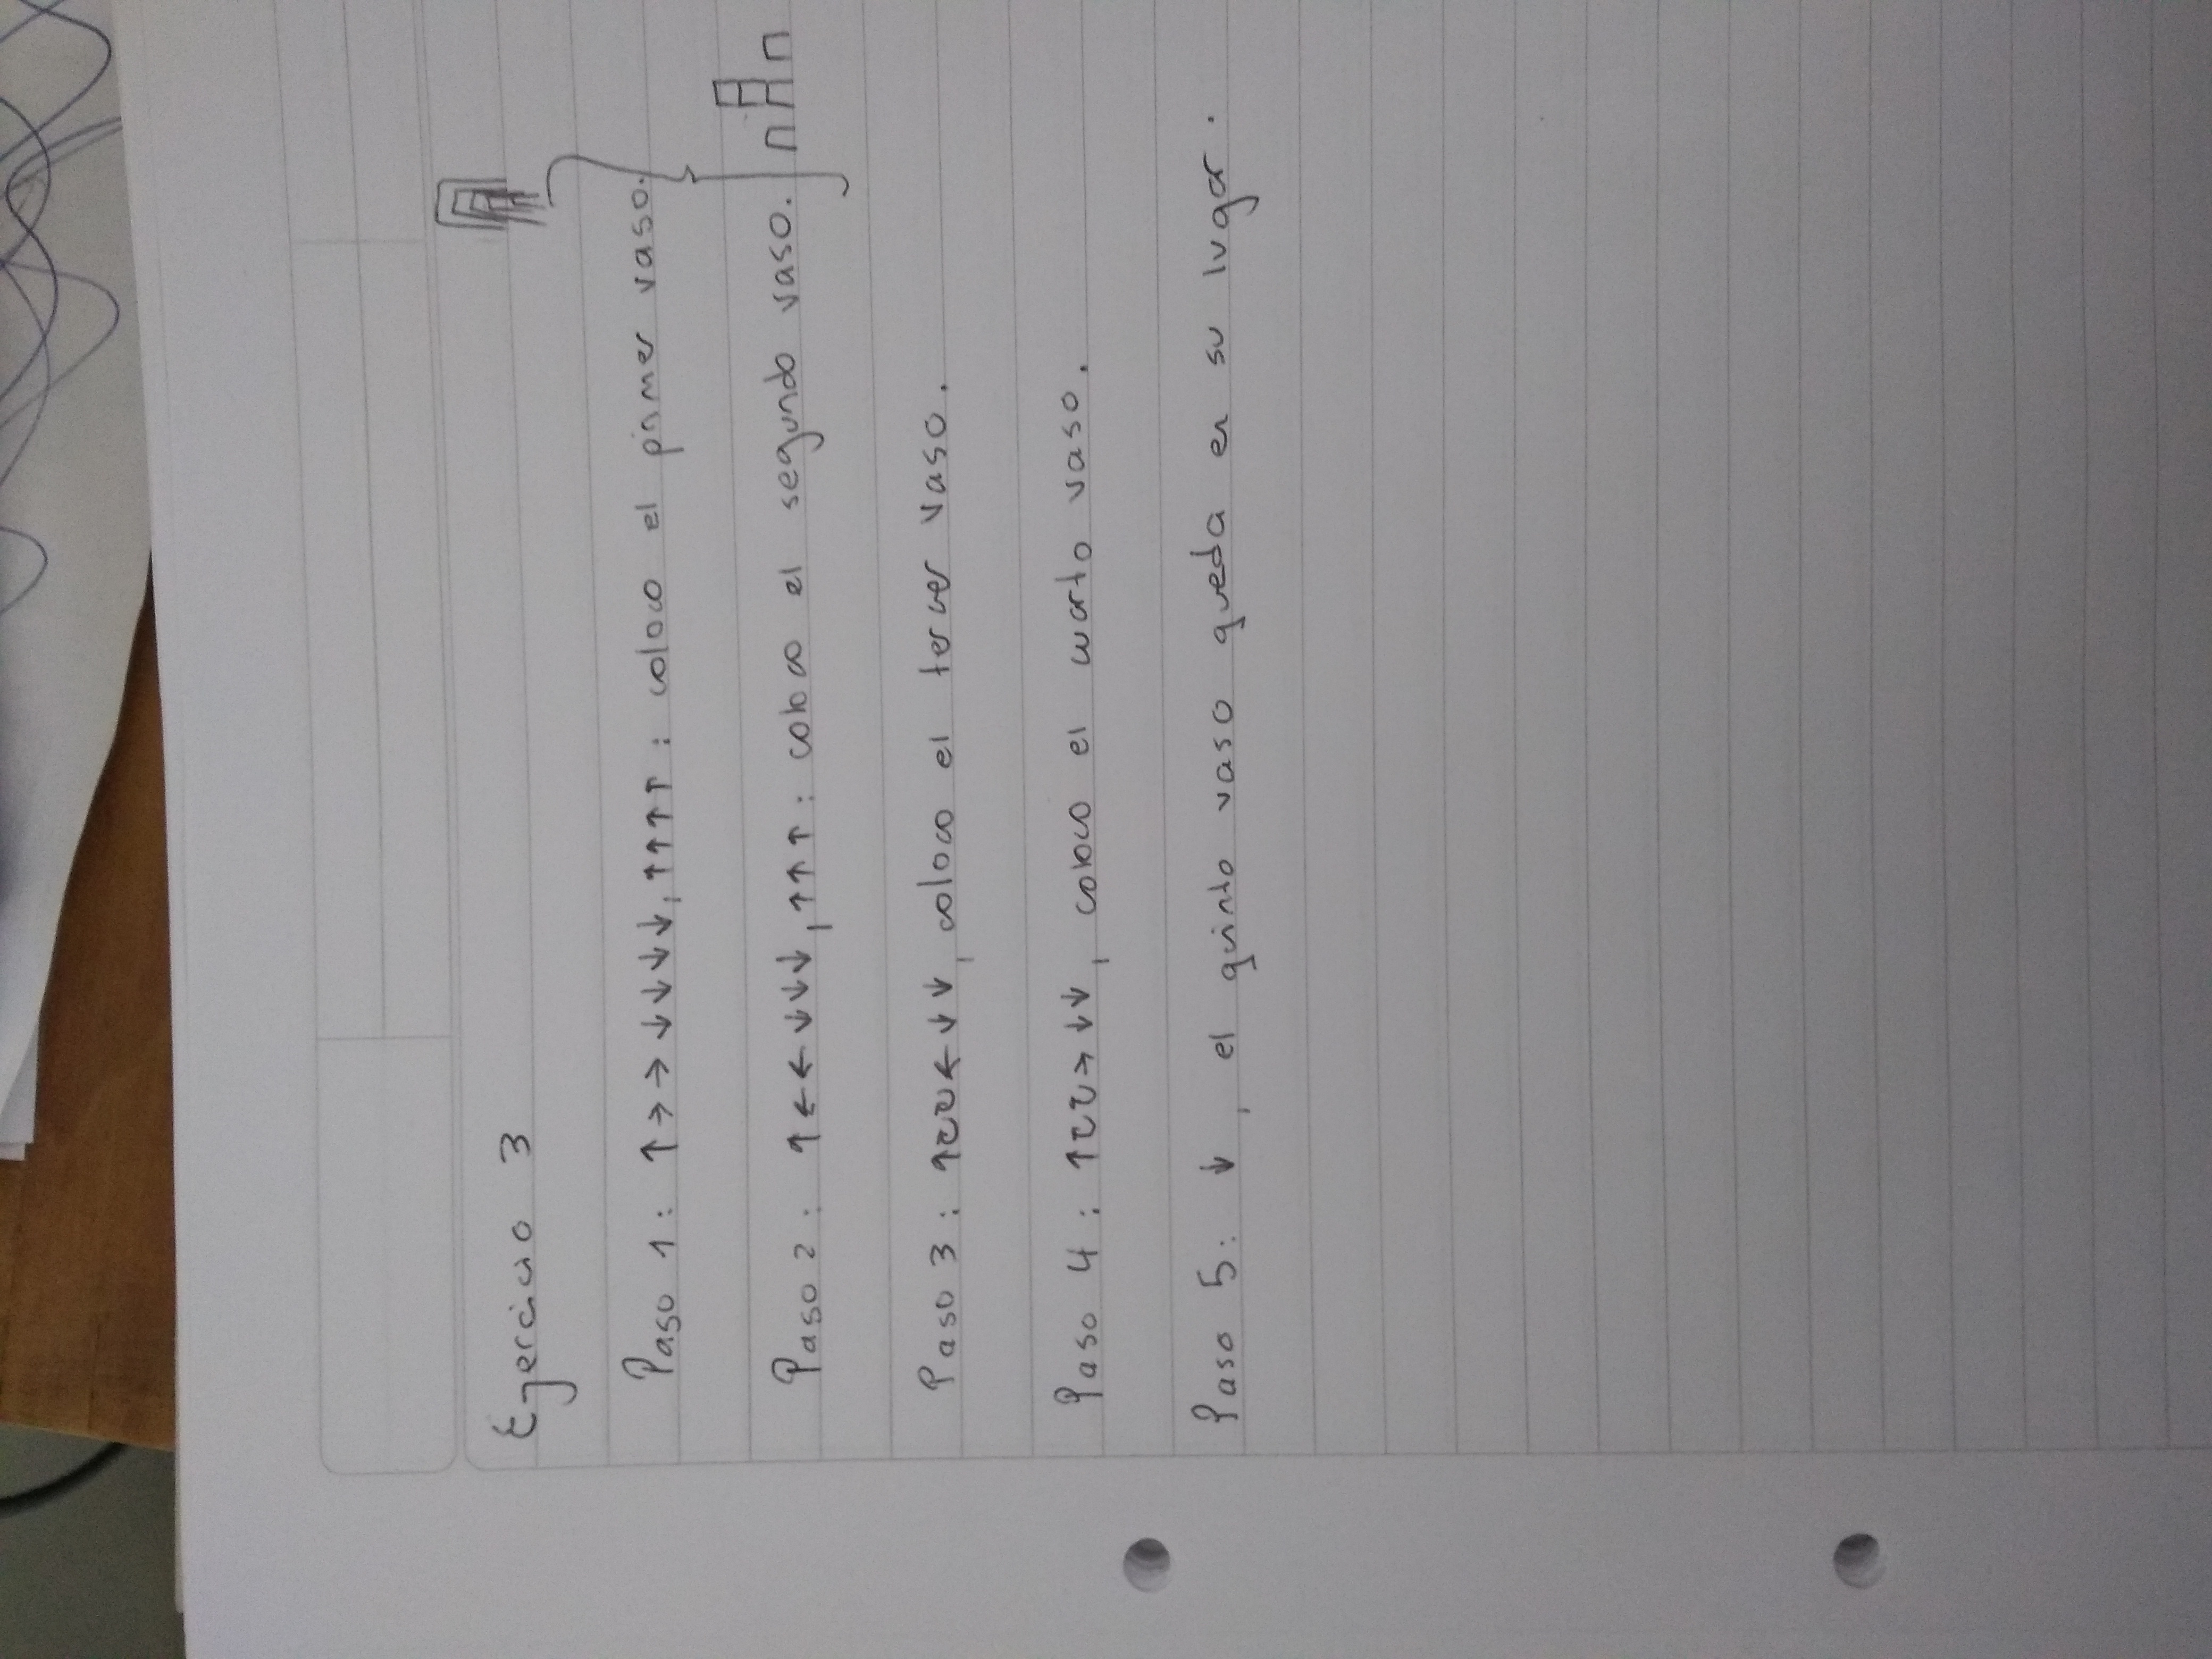 Ejercicio 3
Paso 1: ↑→→↓↓↓↓, ↑↑↑↑ : coloco el primer vaso.
Paso 2: ↑←←↓↓↓, ↑↑↑ : coloco el segundo vaso.
Paso 3: ↑←↓↓, coloco el tercer vaso.
Paso 4: ↑→↓↓, coloco el cuarto vaso.
Paso 5: ↓, el quinto vaso queda en su lugar.